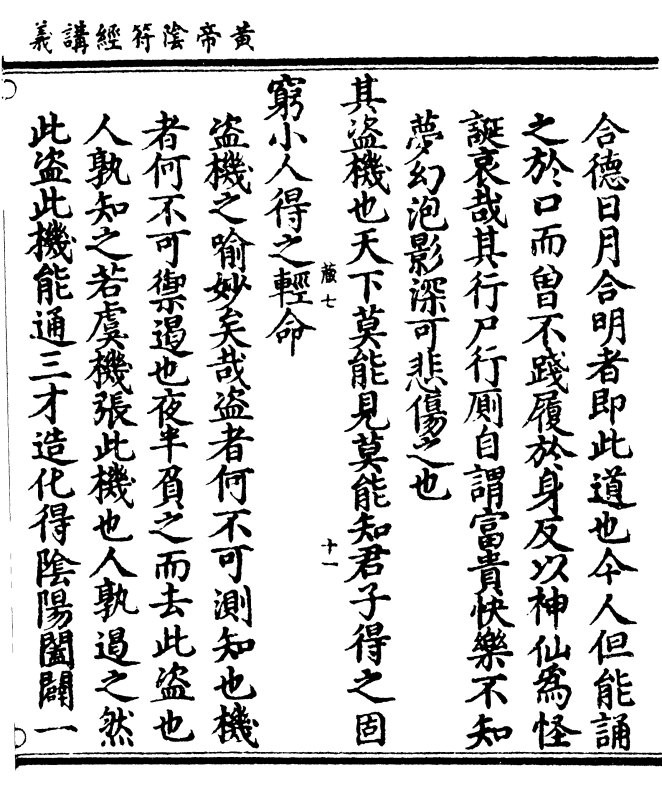 黃帝陰符經講義
合德日月合明者即此道也今人但能誦
之於口而曾不踐履於身反以神仙爲怪
誕哀哉其行尸行厠自謂富貴快樂不知
夢幻泡影深可悲傷之也
其盜機也天下莫能見莫能知君子得之固
薇七
十一
窮小人得之輕命
盜機之喻妙矣哉盜者何不可測知也機
者何不可禦遏也夜半負之而去此盜也
人孰知之若虞機張此機也人孰遏之然
此盜此機能通三才造化得陰陽闔闢一